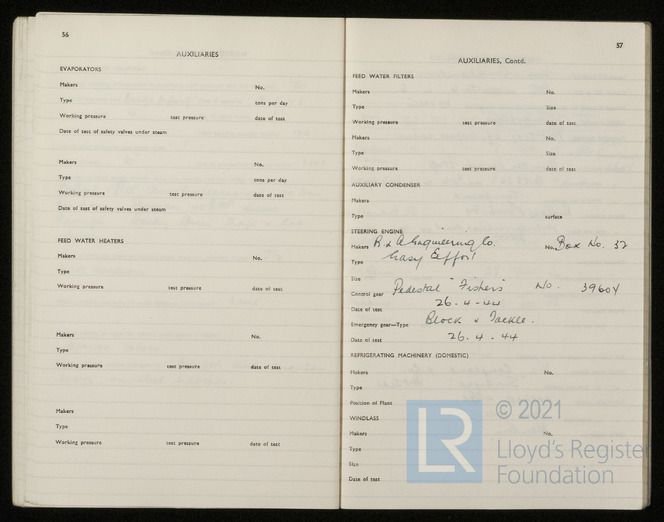 56
AUXILIARIES
EVAPORATORS
Makers No.
Type tons per day
Working pressure test pressure date of test
Date of test of safety valves under steam
Makers No.
Type tons per day
Working pressure test pressure date of test
Date of test of safety valves under steam
FEED WATER HEATERS
Makers No.
Type
Working pressure test pressure date of test
Makers No.
Type
Working pressure test pressure date of test
Makers
Type
Working pressure test pressure date of test
57
AUXILIARIES, Contd.
FEED WATER FILTERS
Makers No.
Type Size
Working pressure test pressure date of test
Makers No.
Type Size
Working pressure test pressure date of test
AUXILIARY CONDENSER
Makers
Type surface
STEERING ENGINE
Makers R & A Engineering Co. No. Box No. 32
Type Easy Effort
Size
Control gear Pedestal "Fishers" No. 3960Y
Date of test 26-4-44
Emergency gear—Type Block & Tackle.
Date of test 26.4.44
REFRIGERATING MACHINERY (DOMESTIC)
Makers No.
Type
Position of Plant
WINDLASS
Makers No.
Type
Size
Date of test
LR © 2021
Lloyd's Register
Foundation